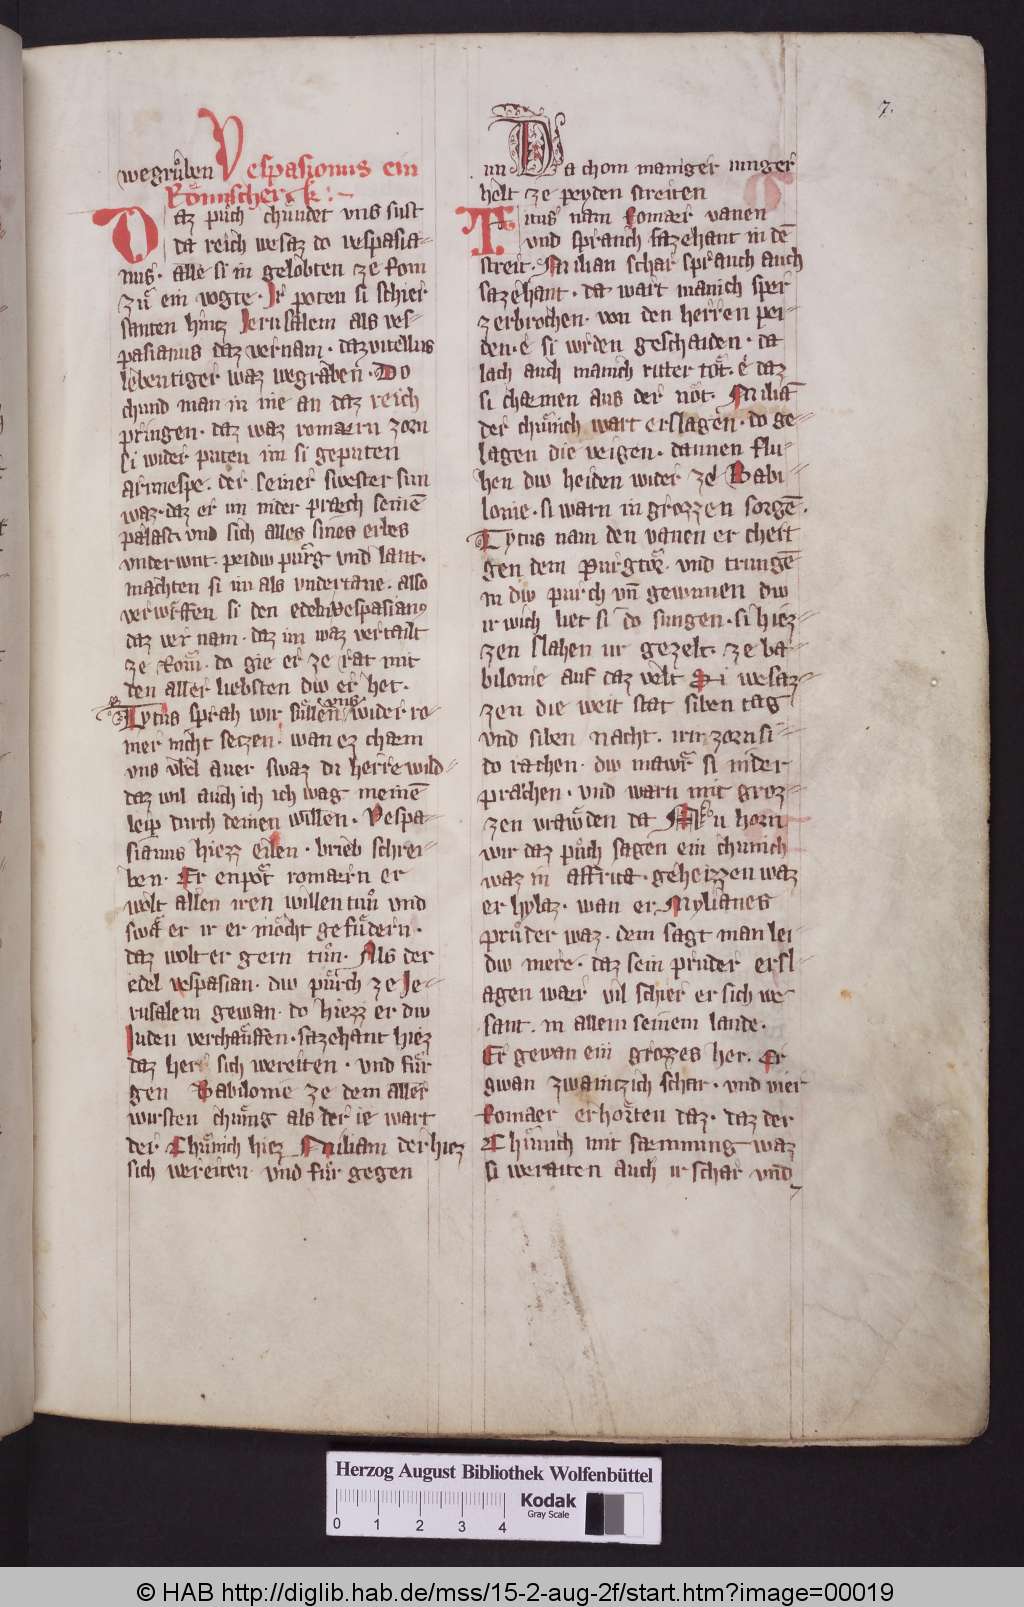 7.
wegrůben Vespasianus ein
Römischer k :-
Daz půch chundet vns sust
da reich wesaz do vespasia-
nus. alle si in gelobten ze Rom
zů ein vogte. Ir poten si schier
santen hincz Jerusalem als ves-
pasianus daz vernam. daz vitellus
lebentiger waz wegraben. Do
chund man in nie an daz reich
pringen. daz waz romaern zorn
si wider puten im si geputen
. der seiner swester sun
waz. daz er im nider prach seinē
palast. vnd sich alles sines erbes
vnderwnt. peidw pürg vnd lant.
machten si im als vndertane. also
verwrffen si den edeln vespasian9
daz ver nam. daz im waz vertailt
ze Rom. do gie er ze rat mit
den aller liebsten diw er het.
Tytus sprah wir süllen vns wider ro-
mer nicht setzen. wan ez chaem
vns vbel auer swaz du herre wild-
daz wil auch ich ich wag meinē
leip durch deinen willen. Vespa-
sianus hiezz eilen. brieb schrei-
ben. Er enpot romaern er
wolt allen iren willen tun vnd
swa er ir er möcht gefüdern.
daz wolt er gern tůn. Als der
edel vespasian. diw pürch ze Je-
rusalem gewan. do hiezz er diw
Juden verchauffen. sazehant hiez
daz her sich wereiten. vnd für
gen Babilonie ze dem aller
wirsten chünig als der ie wart
der Chünich hiez Milian der hiez
sich wereiten vnd für gegen
im Da chom maniger iunger
helt ze peyden streiten
Titus nam Romaer vanen
vnd spranch sazehant in dē
streit. Milian schar spranch auch
sazehant. da wart manich sper
zerbrochen. von den herren pei-
den. e si wrden geschaiden. da
lach auch manich ritter tot. e daz
si chaemen aus der not. Miliā
der chünich wart erslagen. do ge-
lagen die veigen. dannen flu-
hen diw heiden wider ze Babi-
lonie. si warn in grozzen sorgē.
Tytus nam den vanen er chert
gen dem Purgtor. vnd trungē
in diw purch vn̄ gewunnen diw
ir wich liet si do sungen. si hiez-
zen slahen ir gezelt. ze ba-
bilonie auf daz velt Si wesaz-
zen die weit stat siben tag
vnd siben nacht. irn zorn si-
do rachen. diw mawr si nider
prachen. vnd warn mit groz-
zen vrawden da Nu horn
wir daz půch sagen ein chunich
waz in affrica. geheizzen waz
er hylaz. wan er Mylianes
průder waz. dem sagt man lei
diw mere. daz sein pruder ersl-
agen waer vil schier er sich we
sant. in allem seinem lande.
Er gewan ein grozzes her. Er
gwan zwaintzich schar. vnd vier
Romaer erhorten daz. daz der
Chünich mit samnung waz
si weraiten auch ir schar vnd
Herzog August Bibliothek Wolfenbüttel
Kodak
Gray Scale
0 1 2 3 4
© HAB http://diglib.hab.de/mss/15-2-aug-2f/start.htm?image=00019